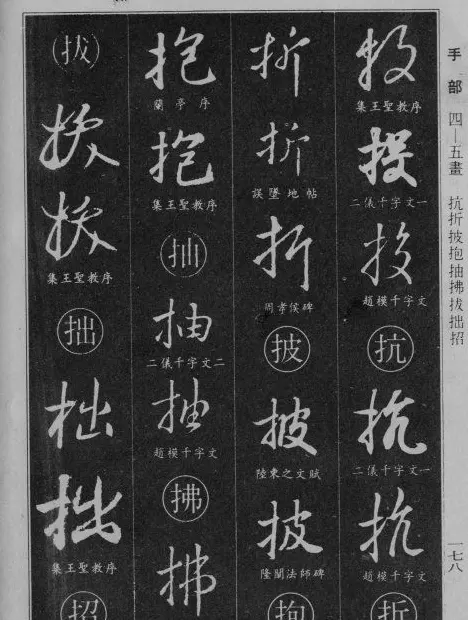 手部 四—五畫 抗折披抱抽拂拔拙招
一七八
投
集王聖教序
投
二儀千字文一
投
趙模千字文
抗
抗
二儀千字文一
抗
趙模千字文
折
折
折
誤墜地帖
折
周孝侯碑
披
披
陸柬之文賦
披
隆闡法師碑
抱
抱
蘭亭序
抱
集王聖教序
抽
抽
二儀千字文二
抽
趙模千字文
拂
拂
拔
拔
拔
集王聖教序
拙
拙
拙
集王聖教序
招